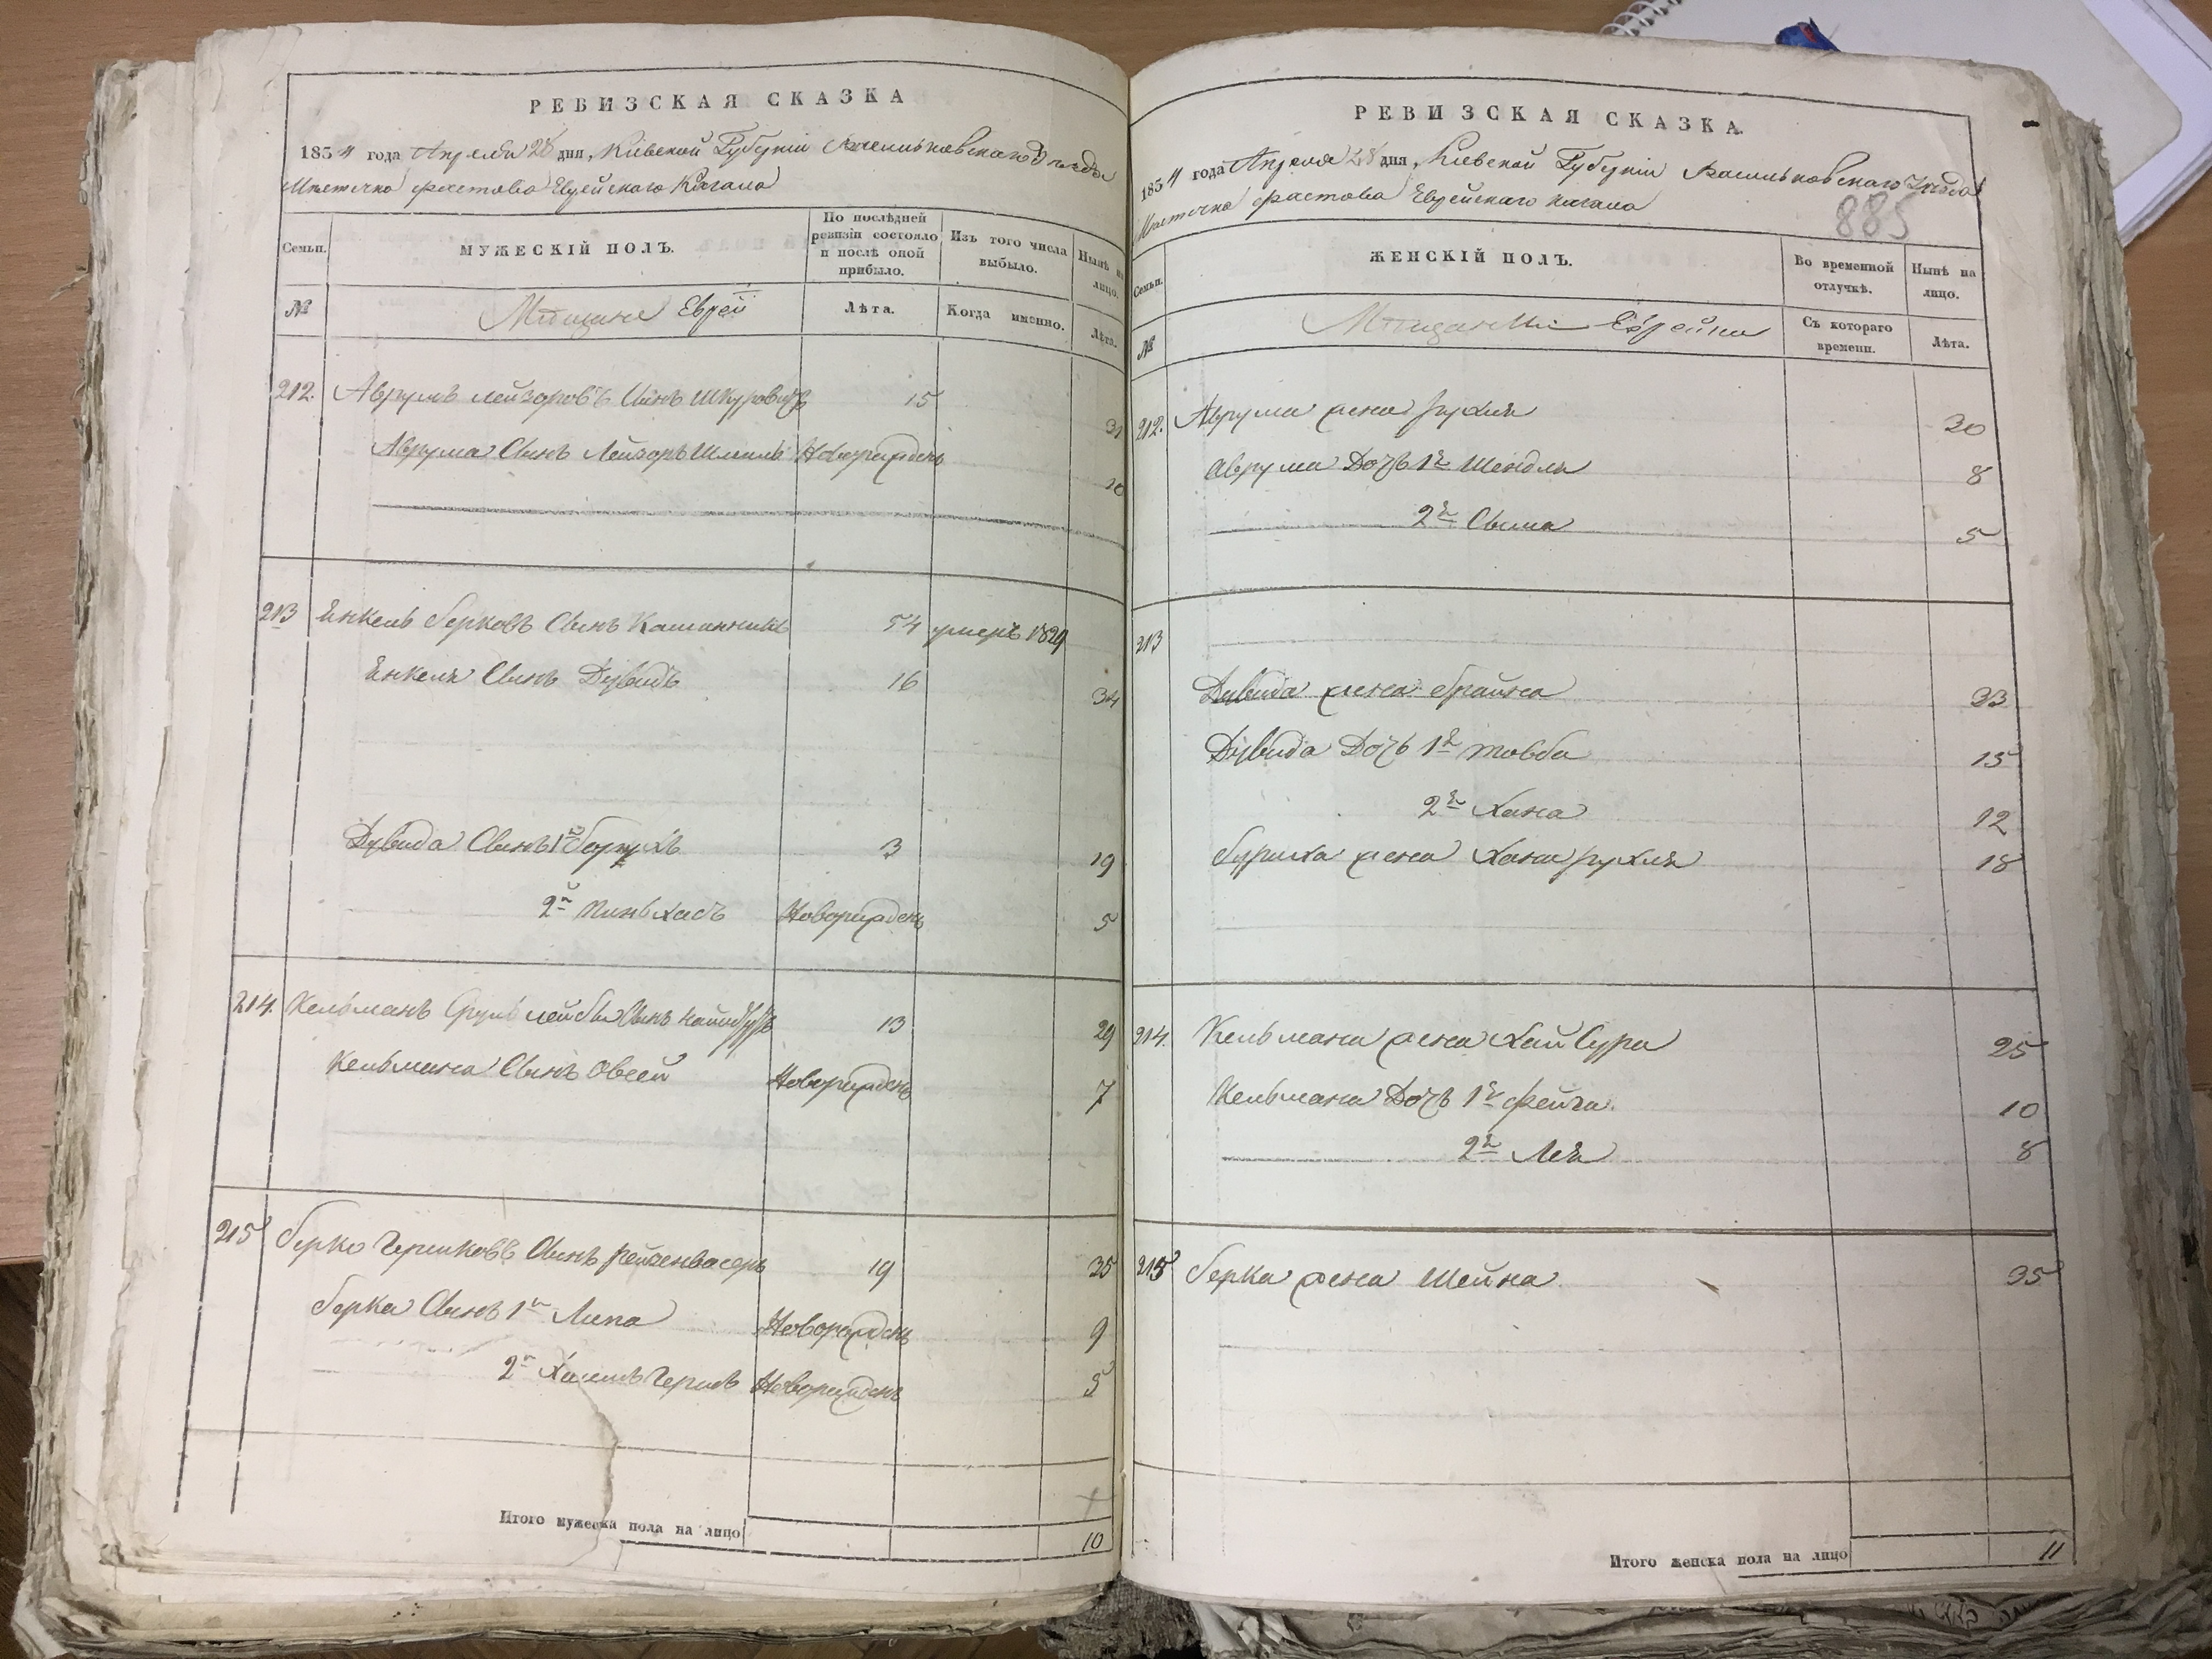 РЕВИЗСКАЯ СКАЗКА
1834 года Апреля 28 дня, Кіевской Губерніи Васильковскаго Уезда
Местечка Фастова Еврейскаго Кагала
Семьи.
МУЖЕСКІЙ ПОЛЪ.
По послѣдней ревизіи состояло и послѣ оной прибыло.
Изъ того числа выбыло.
Нынѣ на лицо.
№
Мещане Евреи
Лѣта.
Когда именно.
Лѣта.
212. Аврумъ Лейзоровъ Сынъ 15 31
Аврума Сынъ Лейзоръ Шмиль Новорожденъ 10
213 Янкель Берковъ Сынъ 54 умеръ 1829
Янкеля Сынъ Дувидъ 16 34
Дувида Сынъ 1й Борухъ 3 19
2й Пиньхасъ Новорожденъ 5
214. Кельманъ Сруль Лейбы Сынъ 13 29
Кельмана Сынъ Овсей Новорожденъ 7
215 Берко Гершковъ Сынъ Рейзенвасеръ 19 35
Берка Сынъ 1й Липа Новорожденъ 9
2й Хаимъ Гершъ Новорожденъ 5
Итого мужеска пола на лицо
10
РЕВИЗСКАЯ СКАЗКА.
1834 года Апреля 28 дня, Кіевской Губерніи Васильковскаго Уезда
Местечка Фастова Еврейскаго Кагала
885
Семьи.
ЖЕНСКІЙ ПОЛЪ.
Во временной отлучкѣ.
Нынѣ на лицо.
№
Мещанки Еврейки
Съ котораго времени.
Лѣта.
212. Аврума жена Рухля 30
Аврума Дочь 1я Шендля 8
2я Сыма 5
213
Дувида жена Брайна 33
Дувида Дочь 1я Товба 15
2я Хана 12
Боруха жена Хана Рухля 18
214. Кельмана жена Хай Сура 25
Кельмана Дочь 1я Фейга. 10
2я Лея 8
215 Берка жена Шейна 35
Итого женска пола на лицо
11